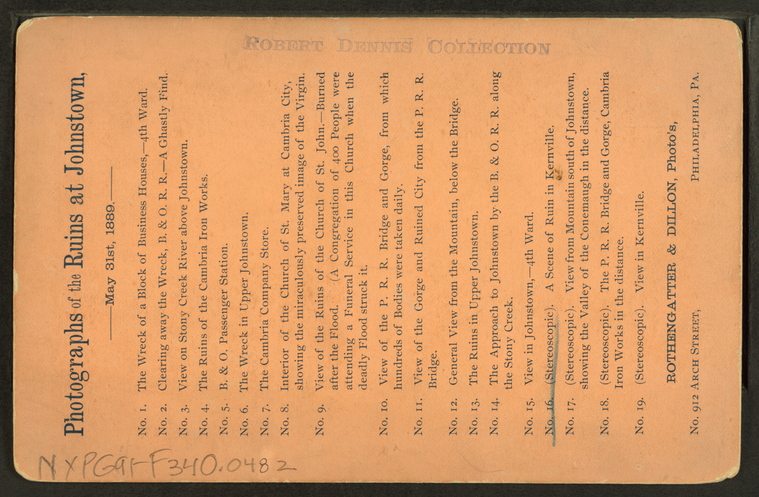 ROBERT DENNIS COLLECTION
Photographs of the Ruins at Johnstown,
May 31st, 1889.
No. 1. The Wreck of a Block of Business Houses,—4th Ward.
No. 2. Clearing away the Wreck, B. & O. R. R.—A Ghastly Find.
No. 3. View on Stony Creek River above Johnstown.
No. 4. The Ruins of the Cambria Iron Works.
No. 5. B. & O. Passenger Station.
No. 6. The Wreck in Upper Johnstown.
No. 7. The Cambria Company Store.
No. 8. Interior of the Church of St. Mary at Cambria City,
showing the miraculously preserved image of the Virgin.
No. 9. View of the Ruins of the Church of St. John.—Burned
after the Flood. (A Congregation of 400 People were
attending a Funeral Service in this Church when the
deadly Flood struck it.
No. 10. View of the P. R. R. Bridge and Gorge, from which
hundreds of Bodies were taken daily.
No. 11. View of the Gorge and Ruined City from the P. R. R.
Bridge.
No. 12. General View from the Mountain, below the Bridge.
No. 13. The Ruins in Upper Johnstown.
No. 14. The Approach to Johnstown by the B. & O. R. R. along
the Stony Creek.
No. 15. View in Johnstown,—4th Ward.
No. 16. (Stereoscopic). A Scene of Ruin in Kernville.
No. 17. (Stereoscopic). View from Mountain south of Johnstown,
showing the Valley of the Conemaugh in the distance.
No. 18. (Stereoscopic). The P. R. R. Bridge and Gorge, Cambria
Iron Works in the distance.
No. 19. (Stereoscopic). View in Kernville.
ROTHENGATTER & DILLON, Photo's,
No. 912 ARCH STREET, PHILADELPHIA, PA.
NYPG91-F340.0482